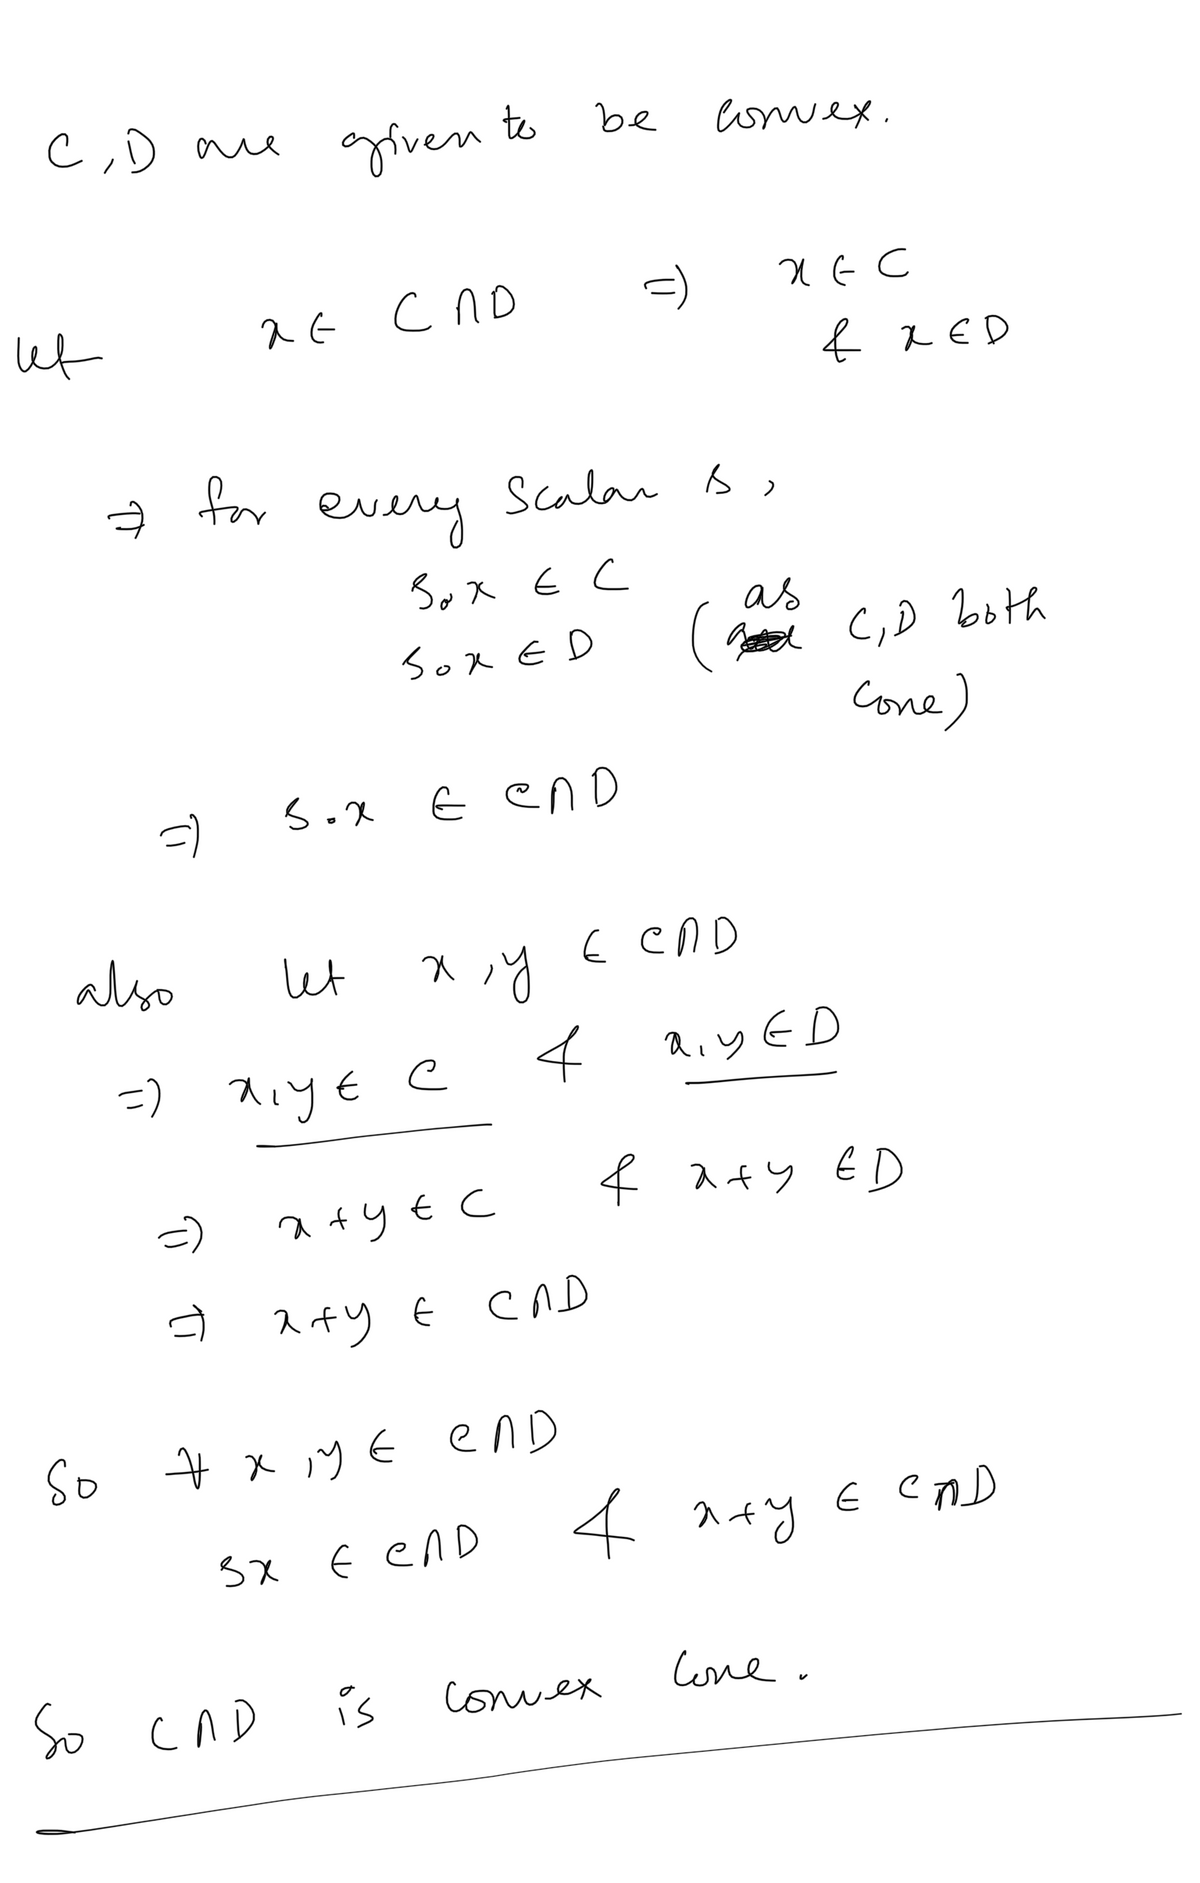 C, D are given to be convex.
let x ∈ C ∩ D ⇒ x ∈ C
& x ∈ D
⇒ for every Scalar s,
s.x ∈ C
s.x ∈ D (as C, D both
cone)
⇒ s.x ∈ C∩D
also let x, y ∈ C∩D
⇒ x, y ∈ C & x, y ∈ D
⇒ x + y ∈ C & x + y ∈ D
⇒ x + y ∈ C∩D
So ∀ x, y ∈ C∩D
sx ∈ C∩D & x + y ∈ C∩D
So C∩D is convex cone.